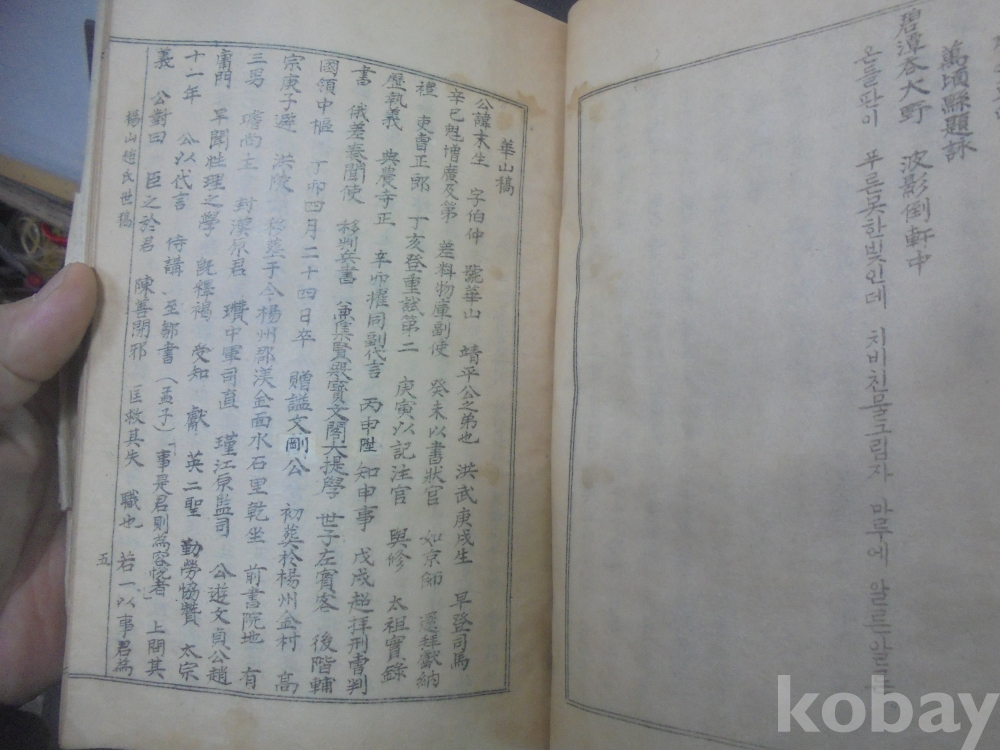 萬頃縣題詠
碧潭吞大野 波影倒軒中
온들판이 푸른못한빛인데 치비친물그림자 마루에 알른알른
華山稿
公諱末生 字伯仲 號華山 靖平公之弟也 洪武庚戌生 早登司馬
辛巳魁增廣及第 差料物庫副使 癸未以書狀官 如京師 還拜獻納
禮 吏曹正郎 丁亥登重試第二 庚寅以記注官 與修 太祖實錄
歷執義 典農寺正 辛卯擢同副代言 丙申陞知申事 戊戌超拜刑曹判
書 俄差奏聞使 移判兵書 兼集賢藝寶文閣大提學 世子左賓客 後階輔
國領中樞 丁卯四月二十四日卒 贈諡文剛公 初葬於楊州金村 高
宗庚子避 洪陵 移葬于今楊州郡渼金面水石里乾坐 前書院地 有
三男 瑨尚主 封漢原君 瓚中軍司直 瑾江原監司 公遊文貞公趙
庸門 早聞性理之學 旣釋褐 受知 獻 英二聖 勤勞協贊 太宗
十一年 公以代言 侍講 至鄒書(孟子)「事是君則爲容悅者」 上問其
義 公對曰 臣之於君 陳善閉邪 匡救其失 職也 若一以事君爲
楊山趙氏世稿 五
kobay